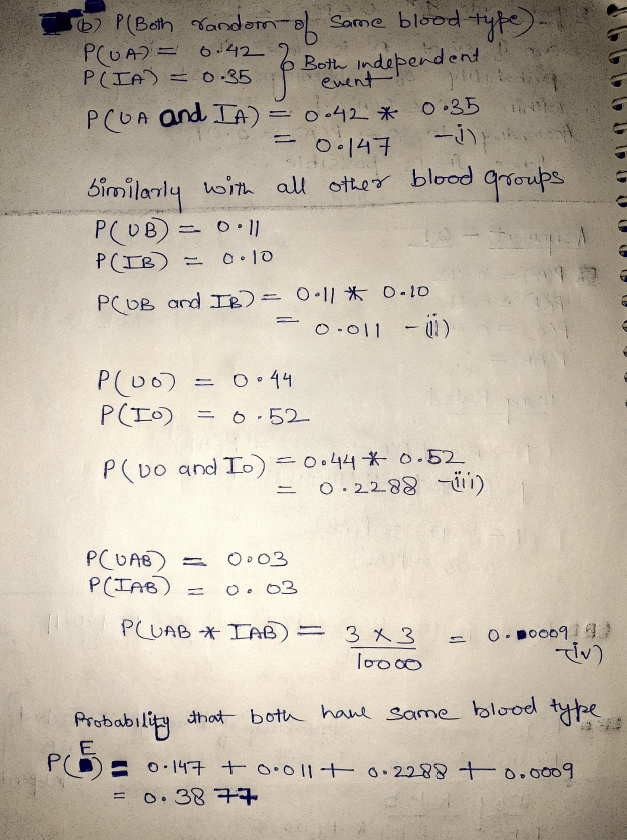 (b) P(Both random of Same blood type)-
P(UA) = 0.42
P(IA) = 0.35
} Both independent event
P(UA and IA) = 0.42 * 0.35
= 0.147 -i)
Similarly with all other blood groups
P(UB) = 0.11
P(IB) = 0.10
P(UB and IB) = 0.11 * 0.10
= 0.011 -(ii)
P(UO) = 0.44
P(IO) = 0.52
P(UO and IO) = 0.44 * 0.52
= 0.2288 -(iii)
P(UAB) = 0.03
P(IAB) = 0.03
P(UAB * IAB) = 3 × 3 / 10000 = 0.0009 -(iv)
Probability that both have same blood type
P(E) = 0.147 + 0.011 + 0.2288 + 0.0009
= 0.3877